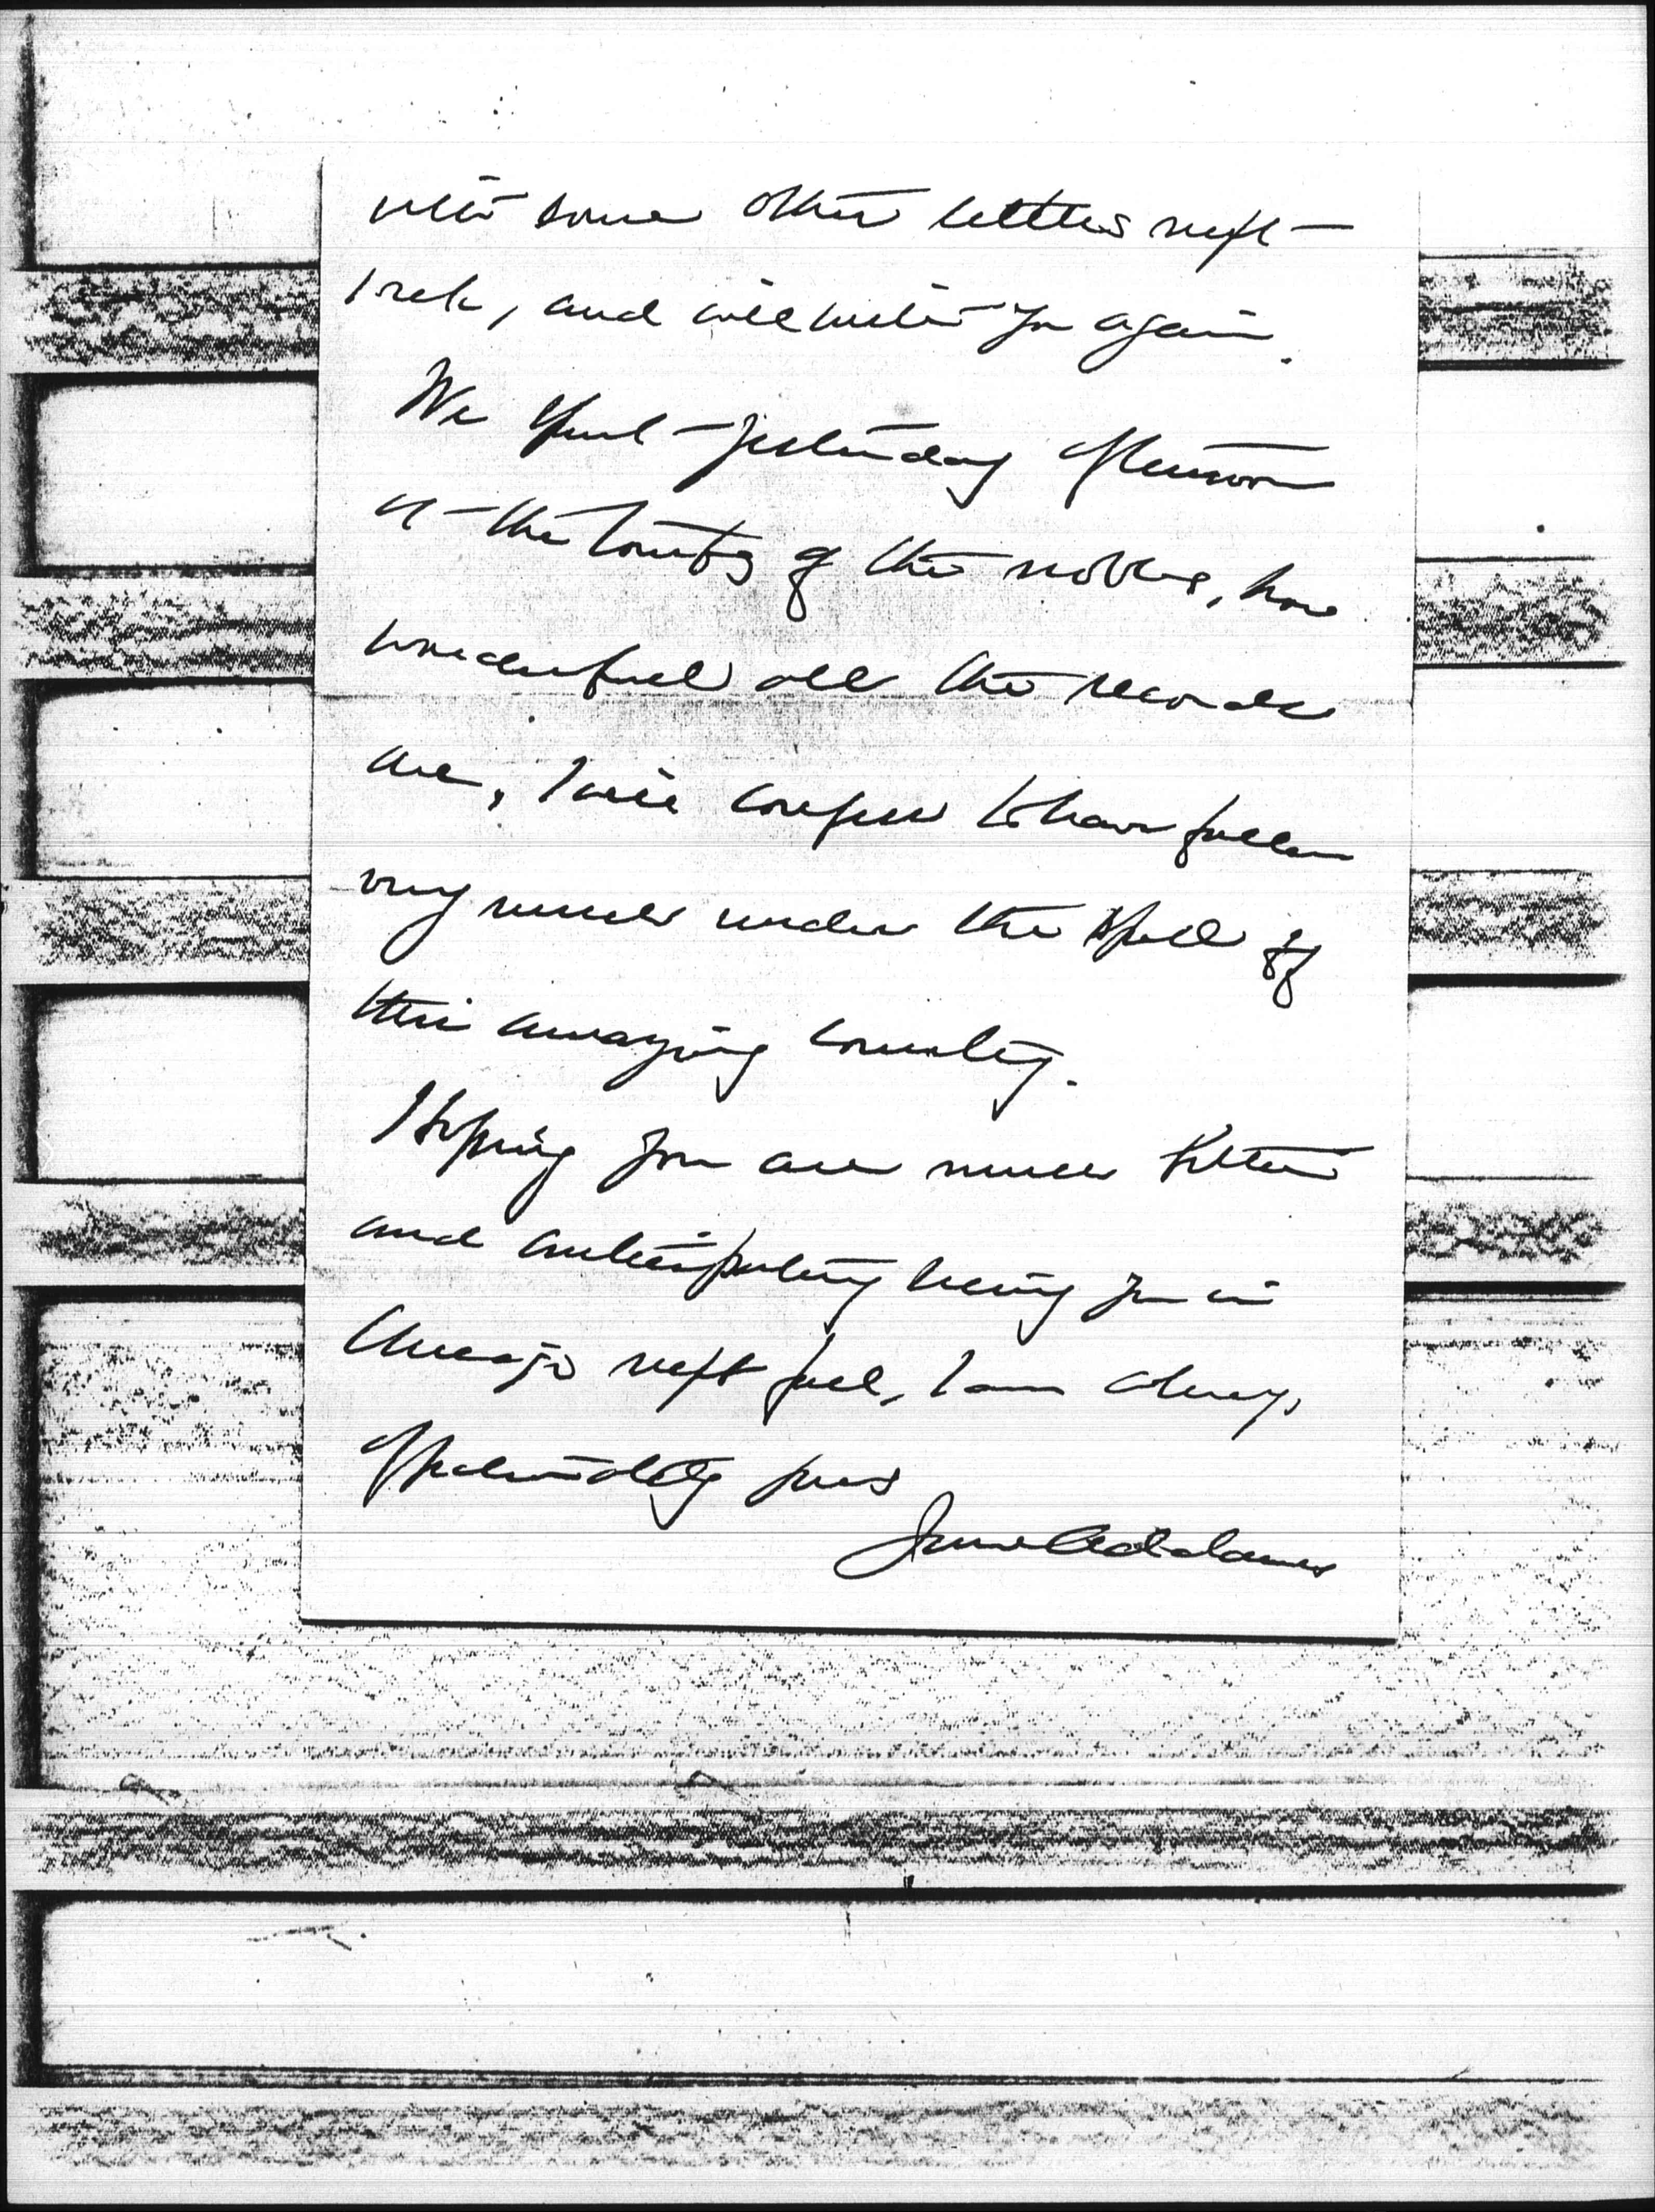 with some other letters next
week, and will write you again.
We spent yesterday afternoon
at the tombs of the nobles, how
wonderful all the records
are, I will confess to have fallen
very much under the spell of
this amazing country.
Hoping you are much better
and anticipating seeing you in
Chicago next fall, I am always
affectionately yours
Jane Addams